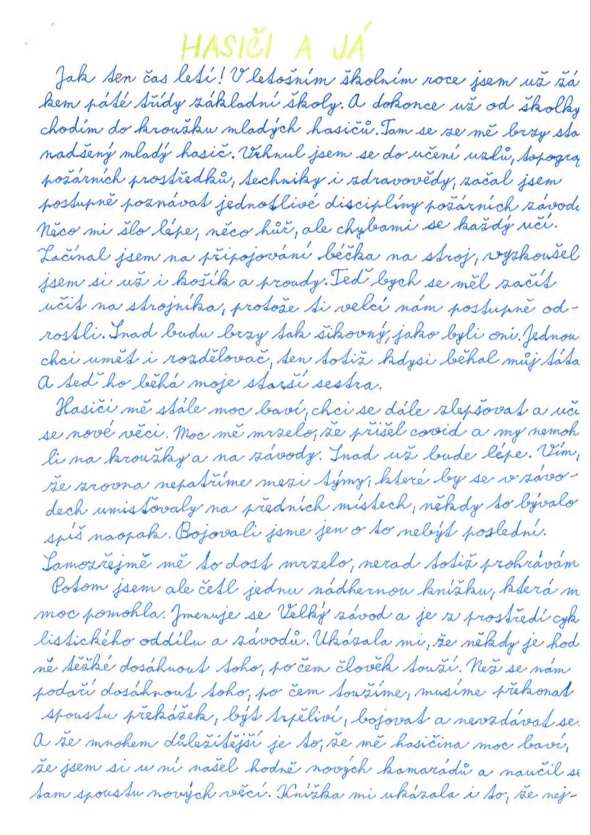 HASIČI A JÁ
Jak ten čas letí! V letošním školním roce jsem už žá
kem páté třídy základní školy. A dokonce už od školky
chodím do kroužku mladých hasičů. Tam se ze mě brzy sta
nadšený mladý hasič. Vrhnul jsem se do učení uzlů, topogra
požárních prostředků, techniky i zdravovědy, začal jsem
postupně poznávat jednotlivé disciplíny požárních závodů
Něco mi šlo lépe, něco hůř, ale chybami se každý učí.
Začínal jsem na připojování béčka na stroj, vyzkoušel
jsem si už i košík a proudy. Teď bych se měl začít
učit na strojníka, protože ti velcí nám postupně od-
rostli. Snad budu brzy tak šikovný, jako byli oni. Jednou
chci umět i rozdělovač, ten totiž kdysi běhal můj táta
A teď ho běhá moje starší sestra.
Hasiči mě stále moc baví, chci se dále zlepšovat a uči
se nové věci. Moc mě mrzelo, že přišel covid a my nemoh
li na kroužky a na závody. Snad už bude lépe. Vím,
že zrovna nepatříme mezi týmy, které by se v závo-
dech umisťovaly na předních místech, někdy to bývalo
spíš naopak. Bojovali jsme jen o to nebýt poslední.
Samozřejmě mě to dost mrzelo, nerad totiž prohrávám
Potom jsem ale četl jednu nádhernou knížku, která m
moc pomohla. Jmenuje se Velký závod a je z prostředí cyk
listického oddílu a závodů. Ukázala mi, že někdy je hod
ně těžké dosáhnout toho, po čem člověk touží. Než se nám
podaří dosáhnout toho, po čem toužíme, musíme překonat
spoustu překážek, být trpěliví, bojovat a nevzdávat se.
A že mnohem důležitější je to, že mě hasičina moc baví,
že jsem si v ní našel hodně nových kamarádů a naučil se
tam spoustu nových věcí. Knížka mi ukázala i to, že nej-